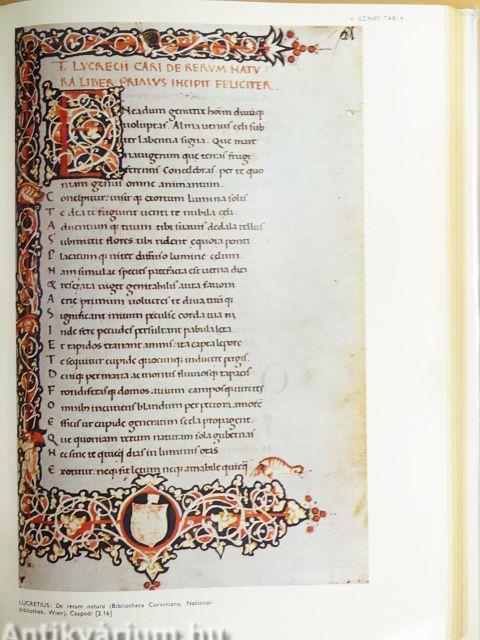 V. SZÍNES TÁBLA
T. LVCRECII CARI DE RERVM NATV
RA LIBER PRIMVS INCIPIT FELICITER.
ENeadum genitrix hom diuūq;
uoluptas. Alma uenus celi sub
ter labentia signa. Que mare
nauigerum que terras frugi
ferentis Concelebras. per te quo
niam genus omne animantum.
Concipitur: uisitq; exortum lumina solis.
Te dea te fugiunt uenti te nubila celi.
Aduentumq; tuum tibi suauis dedala tellus
Submittit flores. tibi rident equora ponti
Placatumq; nitet diffuso lumine celum.
Nam simulac species patefacta est uerna diei
& reserata uiget genitabilis aura fauoni
Aerie primum uolucres te diua tuūq;
Significant initum perculse corda tua ui
Inde fere pecudes persultant pabula leta.
Et rapidos tranant amnis: ita capta lepore
Te sequitur cupide quocunq; inducere pergis.
Deniq; per maria ac montis fluuiosq; rapacis
Frondiferasq; domos auium camposq; uirentis
Omnibꝰ incutiens blandum per pectora amorē
Efficis ut cupide generatim secla propagent.
Que quoniam rerum naturam sola gubernas
Nec sine te quicq̄ dias in luminis oras
Exoritur. neq; fit letum neq; amabile quicq̄
LUCRETIUS: De rerum natura (Bibliotheca Corviniana, National-
bibliothek, Wien), Csapodi [2.16]
Antikvárium.hu